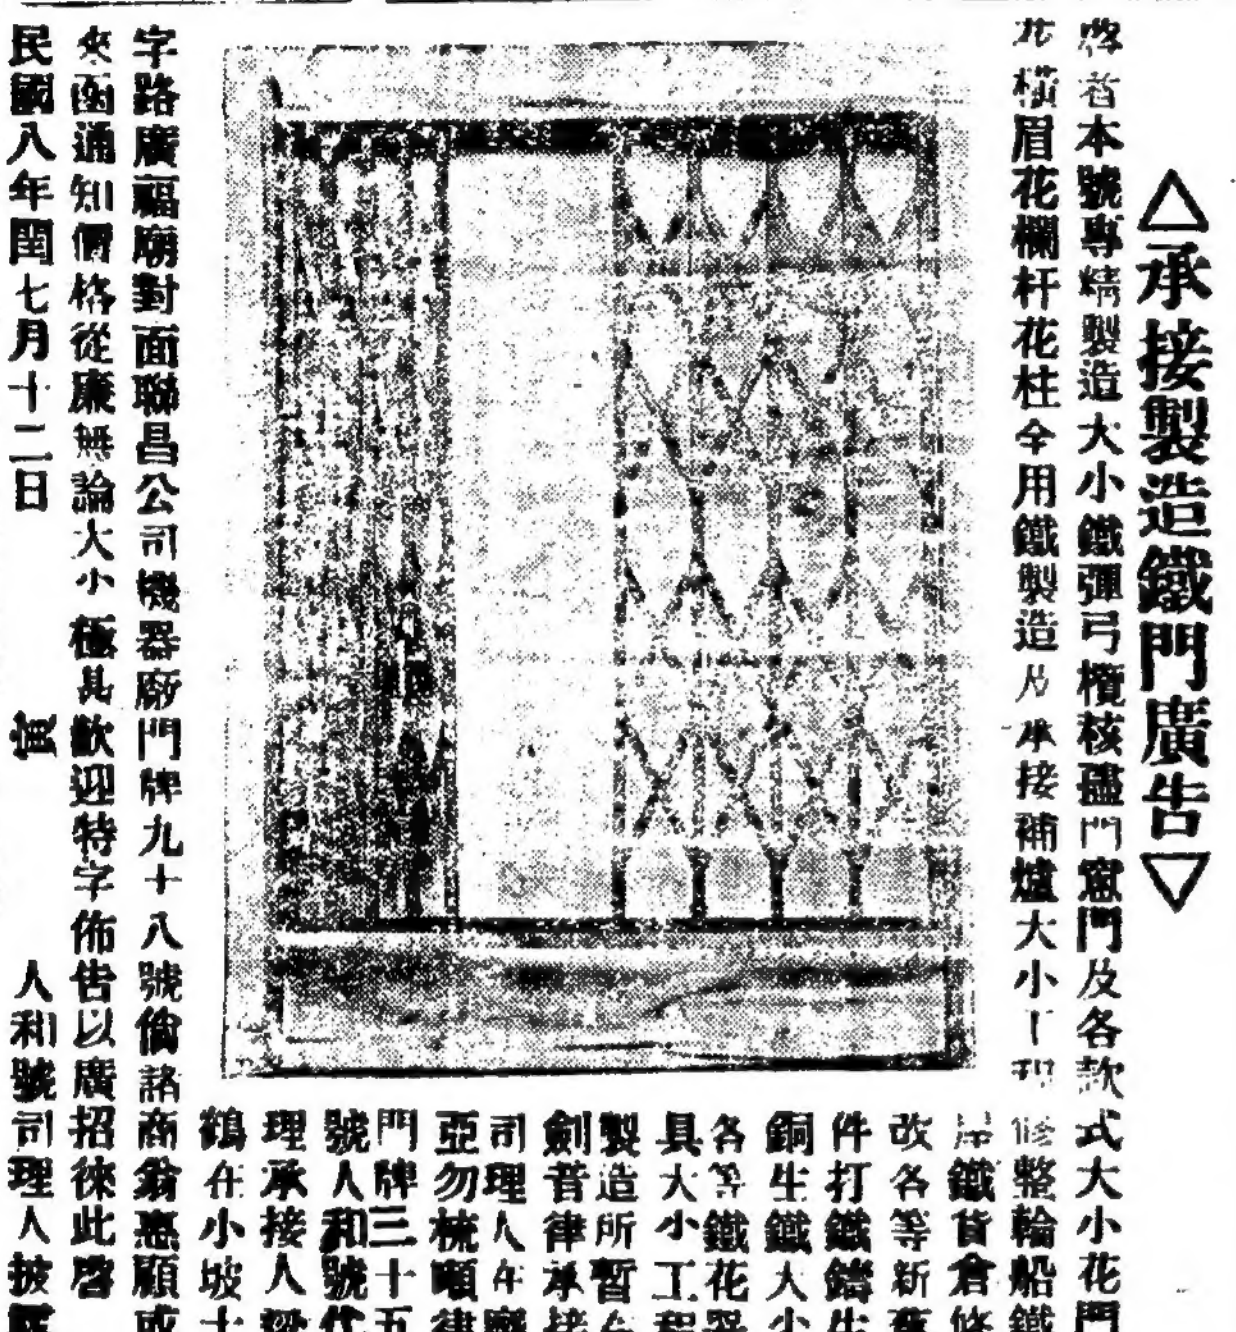 △承接製造鐵門廣告▽
啓者本號專精製造大小鐵彈弓欖核疆門窻門及各款式大小花門
花橫眉花欄杆花柱全用鐵製造及承接補爐大小工程修整輪船鐵
鐵貨倉修
改各等新舊
件打鐵鑄生
銅生鐵大小
各等鐵花器
具大小工程
製造所暫在
劍昔律承接
司理人在廠
亞勿梳順律
門牌三十五
號人和號代
理承接人梁
鶴在小坡十
字路廣福廟對面聯昌公司機器廠門牌九十八號倘諸商翁惠顧或
來函通知價格從廉無論大小極其歡迎特字佈告以廣招徠此啓
民國八年閏七月十二日
寅 人和號司理人披